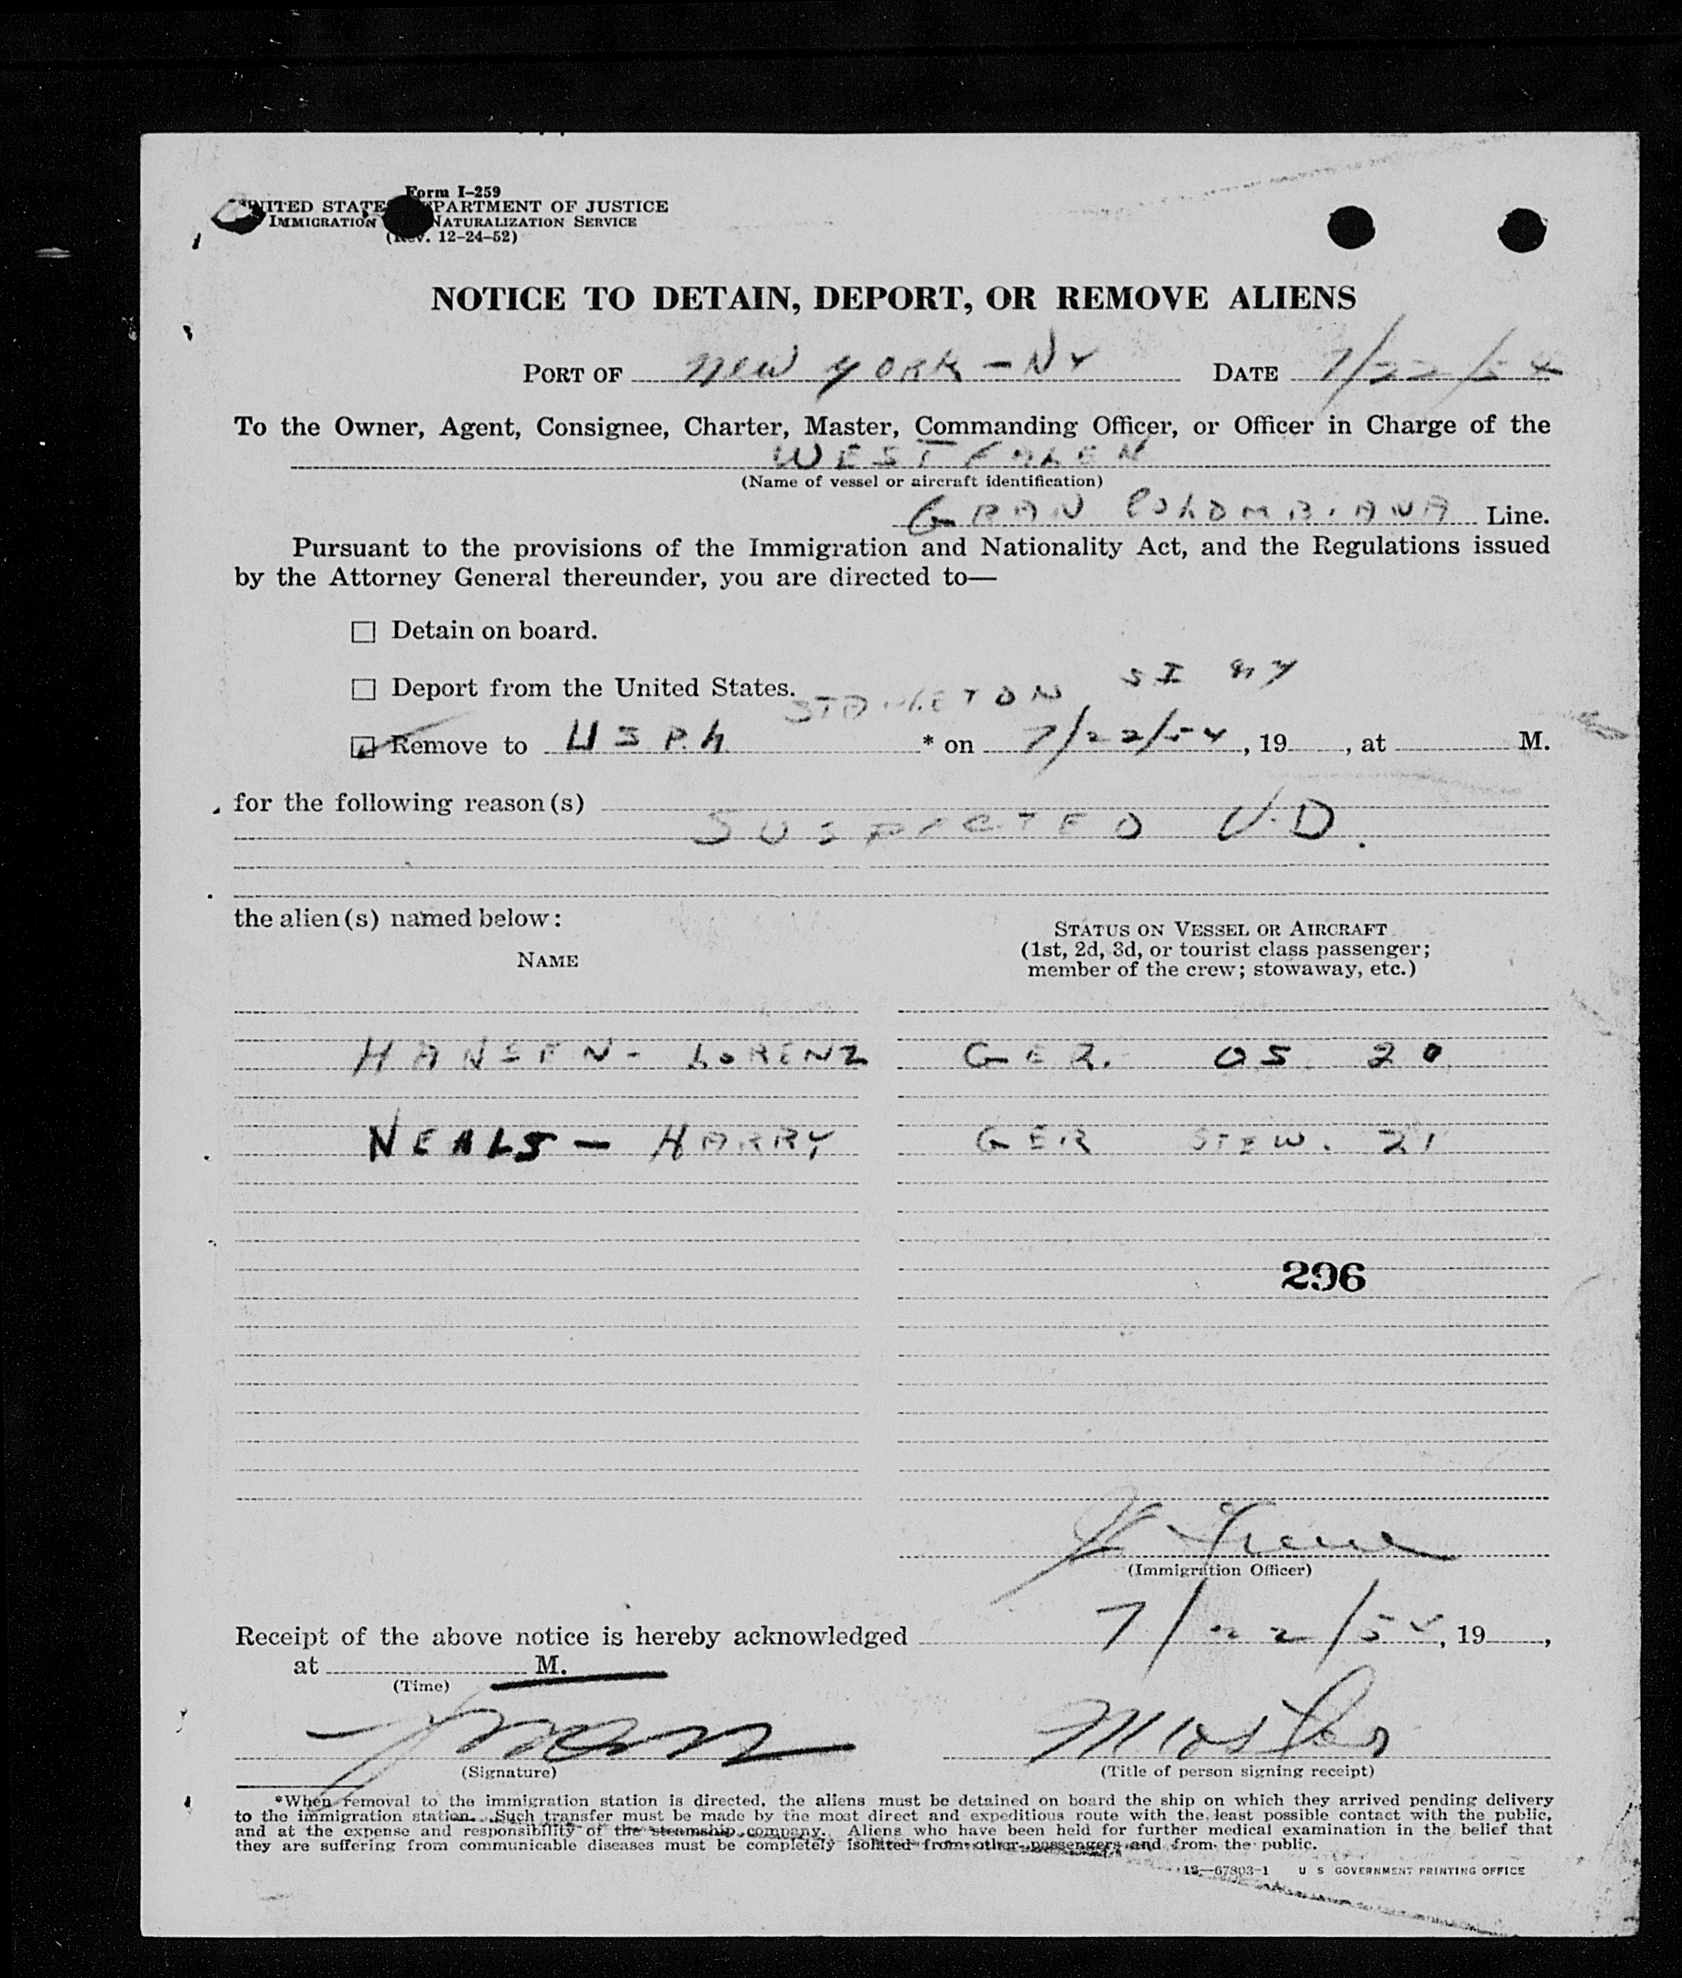 Form I-259
UNITED STATES DEPARTMENT OF JUSTICE
IMMIGRATION NATURALIZATION SERVICE
(Rev. 12-24-52)
NOTICE TO DETAIN, DEPORT, OR REMOVE ALIENS
PORT OF New York - NY DATE 7/22/54
To the Owner, Agent, Consignee, Charter, Master, Commanding Officer, or Officer in Charge of the
WESTFALEN
(Name of vessel or aircraft identification)
GRAN COLOMBIANA Line.
Pursuant to the provisions of the Immigration and Nationality Act, and the Regulations issued
by the Attorney General thereunder, you are directed to—
Detain on board.
Deport from the United States.
STAPLETON SI NY
Remove to USPH * on 7/22/54, 19 , at M.
for the following reason(s)
SUSPECTED V.D.
the alien(s) named below:
NAME
STATUS ON VESSEL OR AIRCRAFT
(1st, 2d, 3d, or tourist class passenger;
member of the crew; stowaway, etc.)
HANSEN - LORENZ GER. OS. 20
NEALS - HARRY GER STEW. 21
296
(Immigration Officer)
Receipt of the above notice is hereby acknowledged 7/22/54, 19 ,
at M.
(Time)
Master
(Signature) (Title of person signing receipt)
*When removal to the immigration station is directed, the aliens must be detained on board the ship on which they arrived pending delivery
to the immigration station. Such transfer must be made by the most direct and expeditious route with the least possible contact with the public,
and at the expense and responsibility of the steamship company. Aliens who have been held for further medical examination in the belief that
they are suffering from communicable diseases must be completely isolated from other passengers and from the public.
16—67803-1 U S GOVERNMENT PRINTING OFFICE